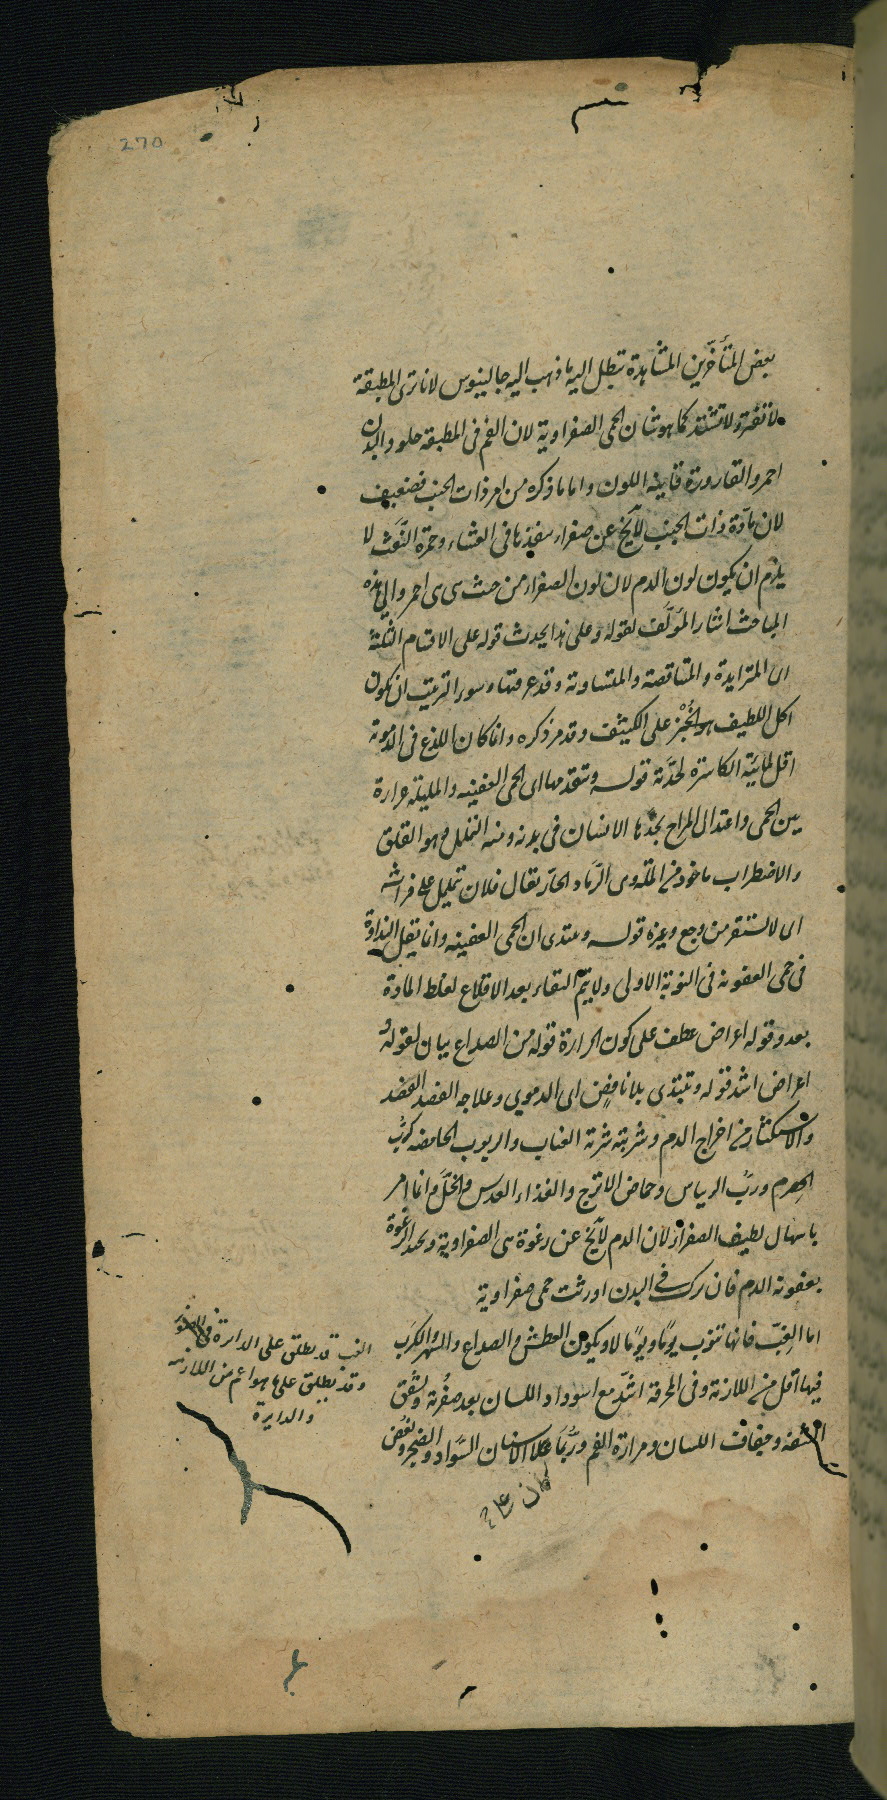 270
بعض المتأخرين المشاهدة تبطل اليه ما ذهب اليه جالينوس لانا نرى المطبقة
لا تفتر ولا تشتد كما هو شان الحمى الصفراوية لان الفم فى المطبقة حلو والبدن
احمر والقارورة قانية اللون واما ما ذكره من امر ذات الجنب فضعيف
لان مادة ذات الجنب لا يخ عن صفراء ينفذها فى الغشاء وحمرة النفث لا
يلزم ان يكون لون الدم لان لون الصفراء من حيث هى هى احمر والى هذه
المباحث اشار المؤلف لقوله وعلى هذا يحدث قوله على الاقسام الثلثة
اى المتزايدة والمتناقصة والمتساوية وقد عرفتها وسور الترتيب ان يكون
اكل اللطيف هو الخبز على الكثيف وقد مر ذكره وانما كان اللذع فى الدموية
اقل لمائيته الكاسرة لحدته قوله وتتقدمها اى الحمى العفنية والمليلة حرارة
بين الحمى واعتدال المزاج يجدها الانسان فى بدنه ومنه التململ وهو القلق
والاضطراب ماخوذ من الملة وهى الرماد الحار يقال فلان يتململ على فراشه
اى لا يستقر من وجع وغيره قوله ويبتدى ان الحمى العفنية وانما يقل النداوة
فى حمى العفونة فى النوبة الاولى ولا يتم النقاء بعد الاقلاع لغلظ المادة
بعد وقوله اعراض عطف على كون الحرارة قوله من الصداع بيان لقوله و
اعراض اشد قوله وتبتدى بلا نافض اى الدموى وعلاجه الفصد الفصد
والاستكثار من اخراج الدم وشربته شربة العناب والربوب الحامضة كرب
الحصرم ورب الريباس وحماض الاترج والغذاء العدس والخل وانما امر
باسهال لطيف الصفراء لان الدم لا يخ عن رغوة هى الصفراوية وتحد الرغوة
بعفونة الدم فان ترك فى البدن اورثت حمى صفراوية
اما الغب فانها تنوب يوما ويوما لا ويكون العطش والصداع والسهر والكرب
فيها اقل من اللازمة وفى المحرقة اشد مع اسوداد اللسان بعد صفرته وتشقق
الشفة وجفاف اللسان ومرارة الفم وربما علا الاسنان السواد والضجر وبغض
الغب قد يطلق على الدائرة
وقد يطلق على ما هو اعم من اللازمة
والدايرة